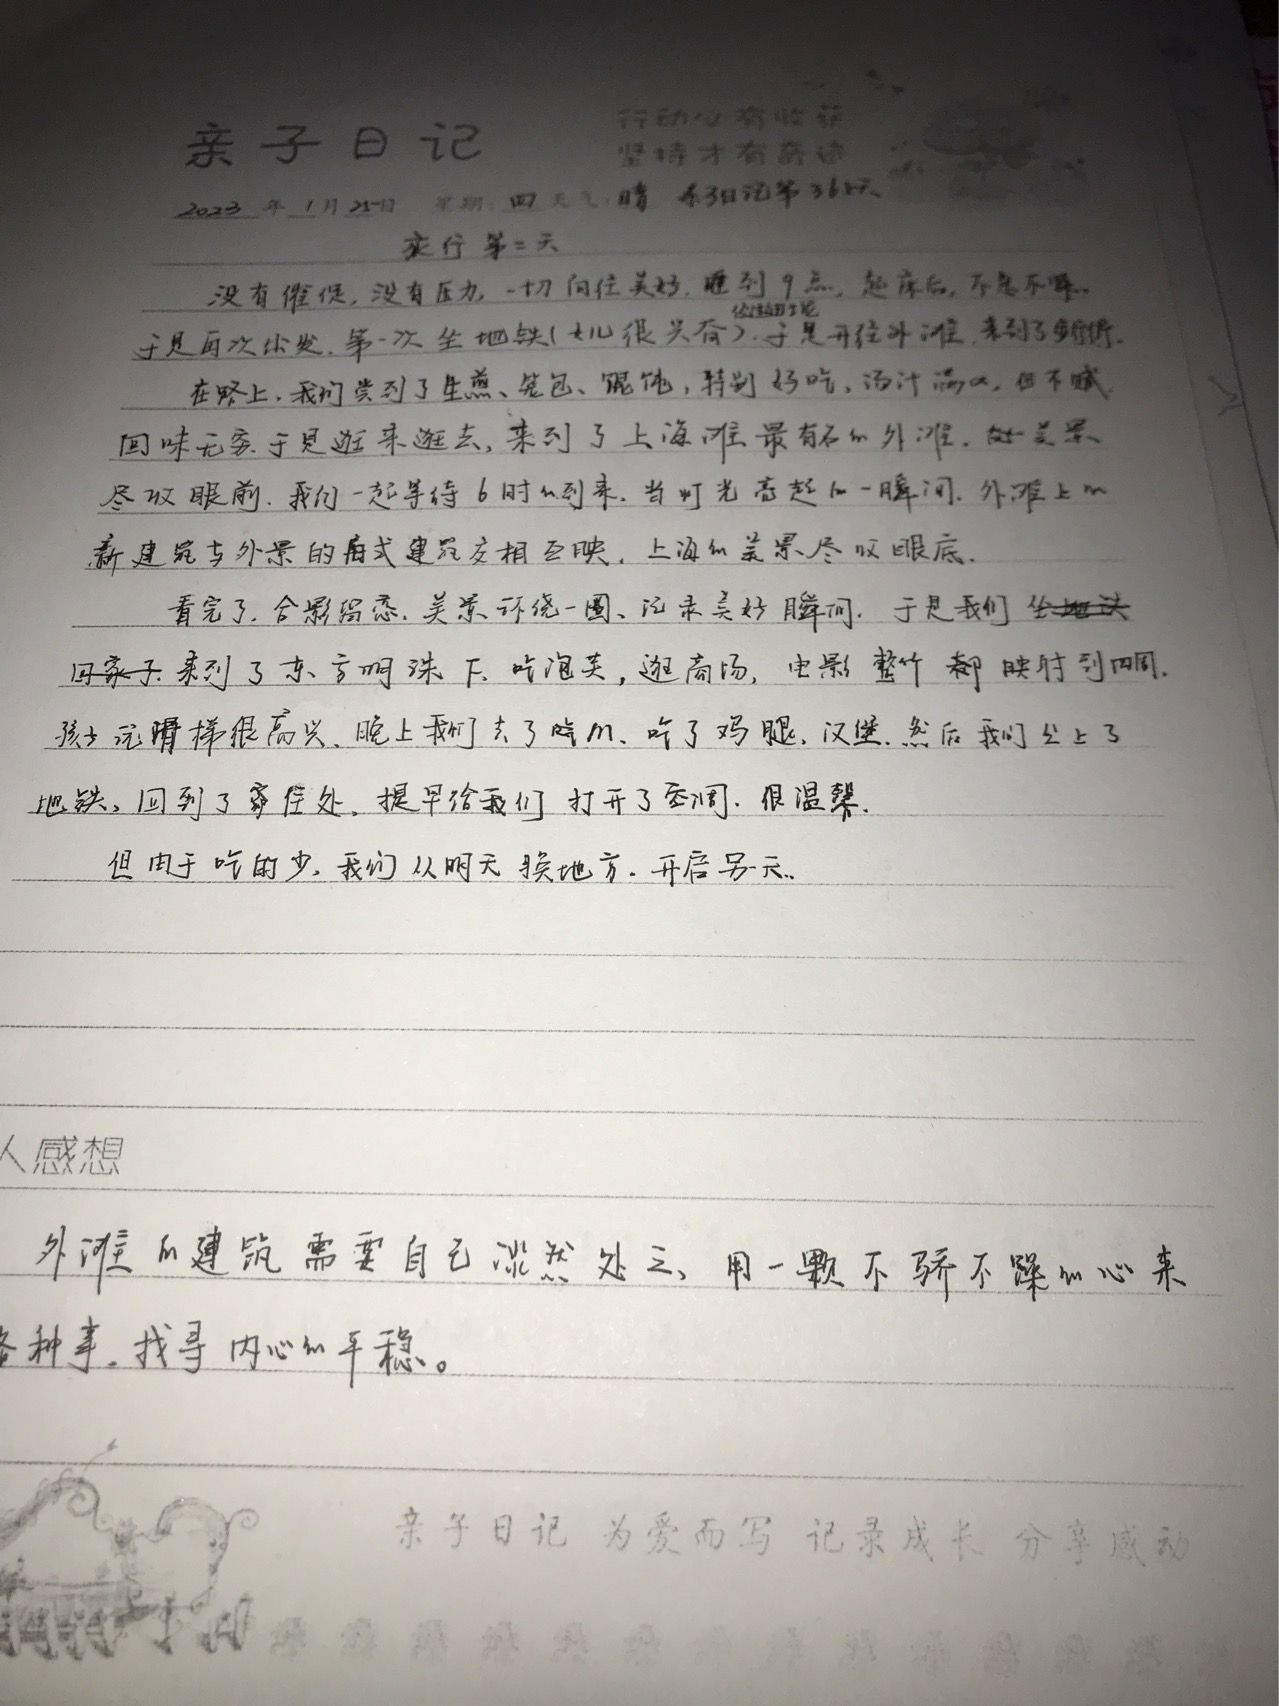 亲子日记
行动必有收获
坚持才有奇迹
2023年1月25日 星期:四 天气:晴 亲子日记第365天
第二天
没有催促,没有压力,一切向往美好.睡到9点,起床后,不急不躁.
于是再次出发.第一次坐地铁(女儿很兴奋).于是开往外滩.来到了
在路上,我们尝到了生煎、笼包、馄饨,特别好吃,汤汁满口,但不腻
回味无穷.于是逛来逛去,来到了上海滩最有名的外滩.美景
尽收眼前.我们一起等待6时的到来.当灯光亮起的一瞬间.外滩上的
新建筑与外景的式建筑交相互映.上海的美景尽收眼底.
看完了.合影留恋.美景环绕一圈、记录美好瞬间.于是我们坐地铁
回家了.来到了东方明珠下.吃泡芙,逛商场,电影都映射到四周.
孩子玩滑梯很高兴.晚上我们去了吃M、吃了鸡腿,汉堡.然后我们坐上了
地铁,回到了住处,提早给我们打开了空调.很温馨.
但由于吃的少,我们从明天换地方.开启另一天.
人感想
外滩的建筑需要自己淡然处之、用一颗不骄不躁的心来
各种事.找寻内心的平稳。
亲子日记 为爱而写 记录成长 分享感动